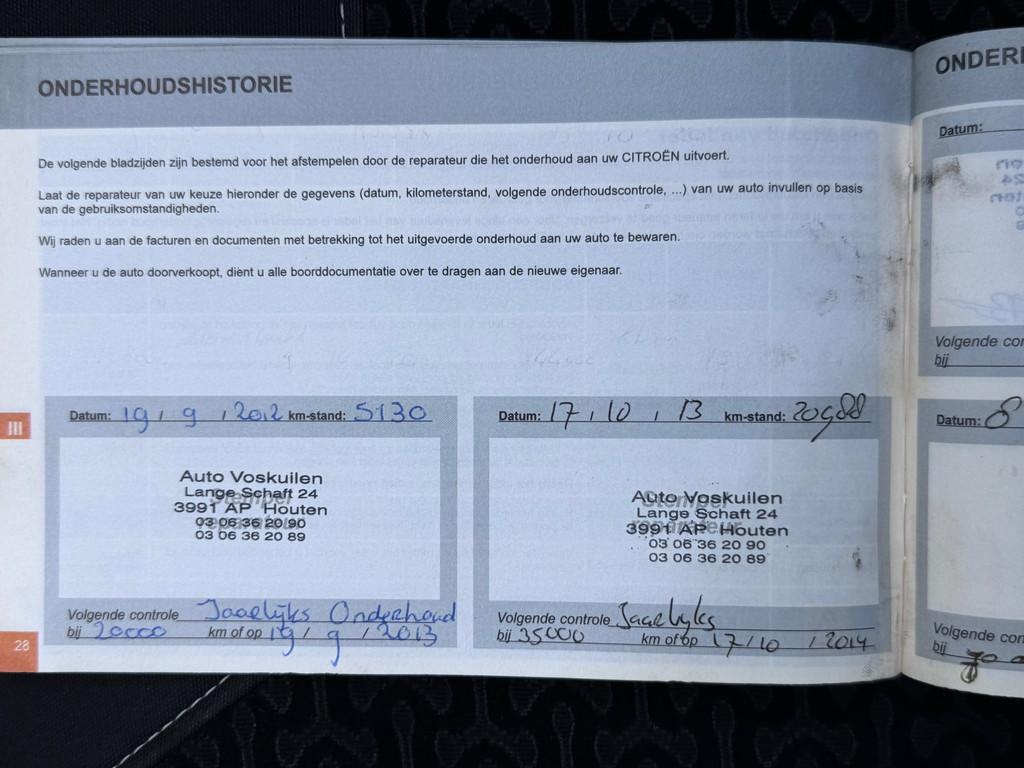 ONDERHOUDSHISTORIE
De volgende bladzijden zijn bestemd voor het afstempelen door de reparateur die het onderhoud aan uw CITROËN uitvoert.
Laat de reparateur van uw keuze hieronder de gegevens (datum, kilometerstand, volgende onderhoudscontrole, ...) van uw auto invullen op basis
van de gebruiksomstandigheden.
Wij raden u aan de facturen en documenten met betrekking tot het uitgevoerde onderhoud aan uw auto te bewaren.
Wanneer u de auto doorverkoopt, dient u alle boorddocumentatie over te dragen aan de nieuwe eigenaar.
Datum: 19 / 9 / 2012 km-stand: 5130
Stempel
reparateur
Auto Voskuilen
Lange Schaft 24
3991 AP Houten
03 06 36 20 90
03 06 36 20 89
Volgende controle Jaarlijks Onderhoud
bij 20000 km of op 19 / 9 / 2013
Datum: 17 / 10 / 13 km-stand: 20988
Stempel
reparateur
Auto Voskuilen
Lange Schaft 24
3991 AP Houten
03 06 36 20 90
03 06 36 20 89
Volgende controle Jaarlyks
bij 35000 km of op 17 / 10 / 2014
III
28
ONDER
Datum:
Volgende con
bij
Datum: 8
Volgende con
bij